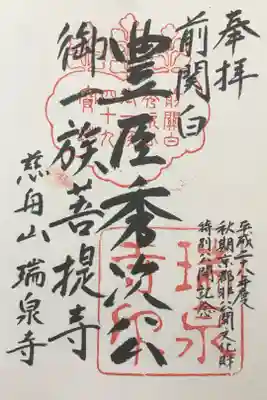 奉拝
前関白
豊臣秀次公
御一族菩提寺
慈舟山 瑞泉寺
平成二八年度
秋期京都非公開文化財
特別公開記念
前關白
四十九
瑞泉